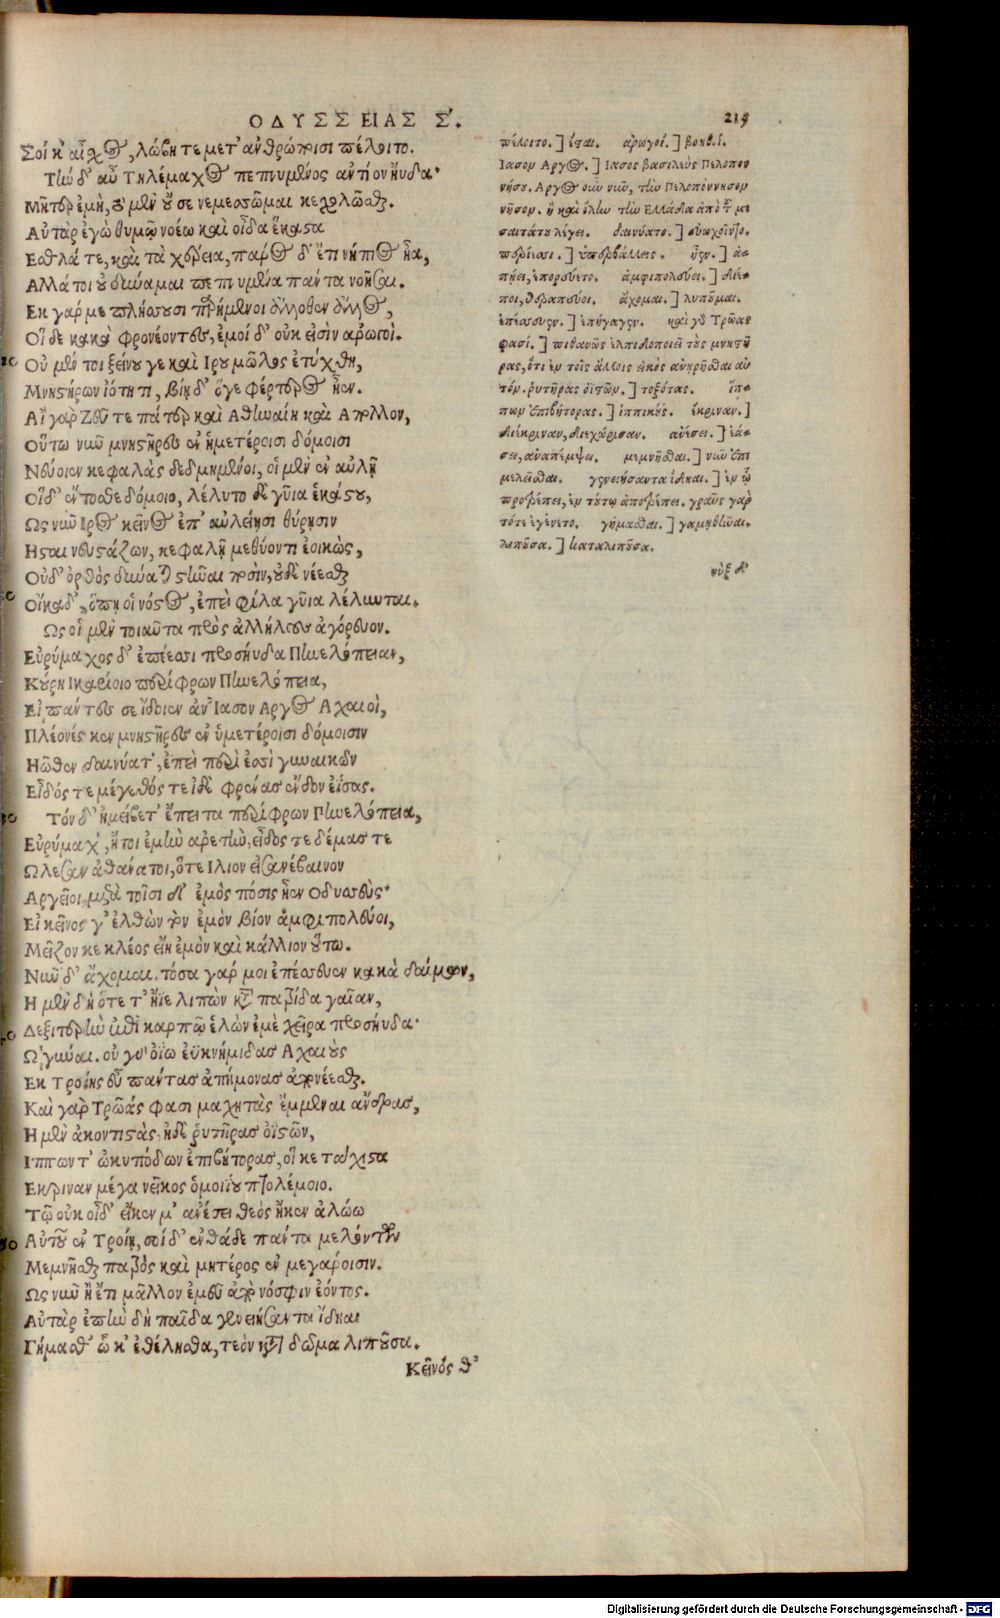 ΟΔΥΣΣΕΙΑΣ Σ.
219
Σοί κ' αἶσχος, λώβη τε μετ' ἀνθρώποισι πέλοιτο.
Τὴν δ' αὖ Τηλέμαχος πεπνυμένος ἀντίον ηὔδα·
Μῆτερ ἐμὴ, τὸ μὲν οὔ σε νεμεσσῶμαι κεχολῶσθαι.
Αὐτὰρ ἐγὼ θυμῷ νοέω καὶ οἶδα ἕκαστα
Εσθλά τε, καὶ τὰ χέρεια, πάρος δ' ἔτι νήπιος ἦα,
Αλλά τοι οὐ δύναμαι πεπνυμένα πάντα νοῆσαι.
Εκ γάρ με πλήσσουσι παρήμενοι ἄλλοθεν ἄλλος,
Οἵδε κακὰ φρονέοντες, ἐμοί δ' οὐκ εἰσὶν ἀρωγοί.
Οὐ μέν τοι ξείνου γε καὶ Ιρου μῶλος ἐτύχθη,
Μνηστήρων ἰότητι, βίῃ δ' ὅγε φέρτερος ἦεν.
Αἲ γὰρ Ζεῦ τε πάτερ καὶ Αθηναίη καὶ Απολλον,
Οὕτω νῦν μνηστῆρες ἐν ἡμετέροισι δόμοισι
Νεύοιεν κεφαλὰς δεδμημένοι, οἱ μὲν ἐν αὐλῇ
Οἱ δ' ἔντοσθε δόμοιο, λέλυτο δὲ γυῖα ἑκάστου,
Ως νῦν Ιρος κεῖνος ἐπ' αὐλείῃσι θύρῃσιν
Ησται νευστάζων, κεφαλῇ μεθύοντι ἐοικὼς,
Οὐδ' ὀρθὸς δύναται στῆναι ποσὶν, οὐδὲ νέεσθαι
Οἴκαδ', ὅπη οἱ νόστος, ἐπεὶ φίλα γυῖα λέλυνται.
Ως οἱ μὲν τοιαῦτα πρὸς ἀλλήλους ἀγόρευον.
Εὐρύμαχος δ' ἐπέεσσι προσηύδα Πηνελόπειαν,
Κούρη Ικαρίοιο περίφρων Πηνελόπεια,
Εἰ πάντες σε ἴδοιεν ἀν' Ιασον Αργος Αχαιοὶ,
Πλέονές κεν μνηστῆρες ἐν ὑμετέροισι δόμοισιν
Ηῶθεν δαινύατ', ἐπεὶ περίεσσι γυναικῶν
Εἶδός τε μέγεθός τε ἰδὲ φρένας ἔνδον ἐΐσας.
Τόν δ' ἠμείβετ' ἔπειτα περίφρων Πηνελόπεια,
Εὐρύμαχ', ἤτοι ἐμὴν ἀρετὴν, εἶδος τε δέμας τε
Ωλεσαν ἀθάνατοι, ὅτε Ιλιον εἰσανέβαινον
Αργεῖοι, μετὰ τοῖσι δ' ἐμὸς πόσις ἦεν Οδυσσεύς·
Εἰ κεῖνος γ' ἐλθὼν τὸν ἐμόν βίον ἀμφιπολεύοι,
Μεῖζον κε κλέος εἴη ἐμόν καὶ κάλλιον οὕτω.
Νῦν δ' ἄχομαι. τόσα γάρ μοι ἐπέσσευεν κακὰ δαίμων,
Η μὲν δὴ ὅτε τ' ᾖε λιπὼν κατὰ πατρίδα γαῖαν,
Δεξιτερὴν ἐπὶ καρπῷ ἑλὼν ἐμὲ χεῖρα προσηύδα·
Ω γύναι. οὐ γὰρ ὀΐω ἐϋκνήμιδας Αχαιοὺς
Εκ Τροίης εὖ πάντας ἀπήμονας ἀπονέεσθαι.
Καὶ γὰρ Τρῶάς φασι μαχητὰς ἔμμεναι ἄνδρας,
Η μὲν ἀκοντιστὰς, ἠδὲ ῥυτῆρας ὀϊστῶν,
Ιππων τ' ὠκυπόδων ἐπιβήτορας, οἵ κε τάχιστα
Εκριναν μέγα νεῖκος ὁμοιΐου πτολέμοιο.
Τῷ οὐκ οἶδ' εἴκεν μ' ἀνέσει θεὸς ἦκεν ἁλώω
Αὐτοῦ ἐν Τροίῃ, σοί δ' ἐνθάδε πάντα μελόντων
Μεμνῆσθαι πατρὸς καὶ μητέρος ἐν μεγάροισιν.
Ως νῦν ἢ ἔτι μᾶλλον ἐμεῦ ἀπὸ νόσφιν ἐόντος.
Αὐτὰρ ἐπὴν δὴ παῖδα γενειήσαντα ἴδηαι
Γήμασθ' ᾧ κ' ἐθέλησθα, τεὸν κατὰ δῶμα λιποῦσα.
Κεῖνός θ'
πέλοιτο.] ἔσται. ἀρωγοί.] βοηθοί.
Ιασον Αργος.] Ιασος βασιλεὺς Πελοπον
νήσου. Αργος οὖν νῦν, τὴν Πελοπόννησον
νῆσον. ἢ καὶ ὅλην τὴν Ελλάδα ἀπὸ τοῦ με
σαιτάτου λέγει. δαινύατο.] εὐωχοῖντο.
περίεσσι.] ὑπερβάλλεις. ᾖεν.] ἀ-
πῄει, ἐπορεύετο. ἀμφιπολεύει.] διέ-
ποι, θεραπεύοι. ἄχομαι.] λυποῦμαι.
ἐπέσσυεν.] ἐπήγαγεν. καὶ γὰρ Τρῶας
φασί.] πιθανῶς ἐλπιδοποιεῖ τοὺς μνηστῆ
ρας, ὅτι ἐν τοῖς ἄλλοις εἰκὸς ἀνῃρῆσθαι αὐ
τόν. ῥυτῆρας ὀϊστῶν.] τοξότας. ἵπ-
πων ἐπιβήτορας.] ἱππικούς. ἔκριναν.]
διέκριναν, διεχώρισαν. ἀνέσει.] ἐά-
σει, ἀναπέμψει. μεμνῆσθαι.] νῦν ἐπι
μελεῖσθαι. γενειήσαντα ἴδηαι.] ἐν ᾧ
προτρέπει, ἐν τούτῳ ἀποτρέπει. γραῦς γὰρ
τότε ἐγένετο. γήμασθαι.] γαμηθῆναι.
λιποῦσα.] καταλιποῦσα.
νὺξ δ'
Digitalisierung gefördert durch die Deutsche Forschungsgemeinschaft - DFG